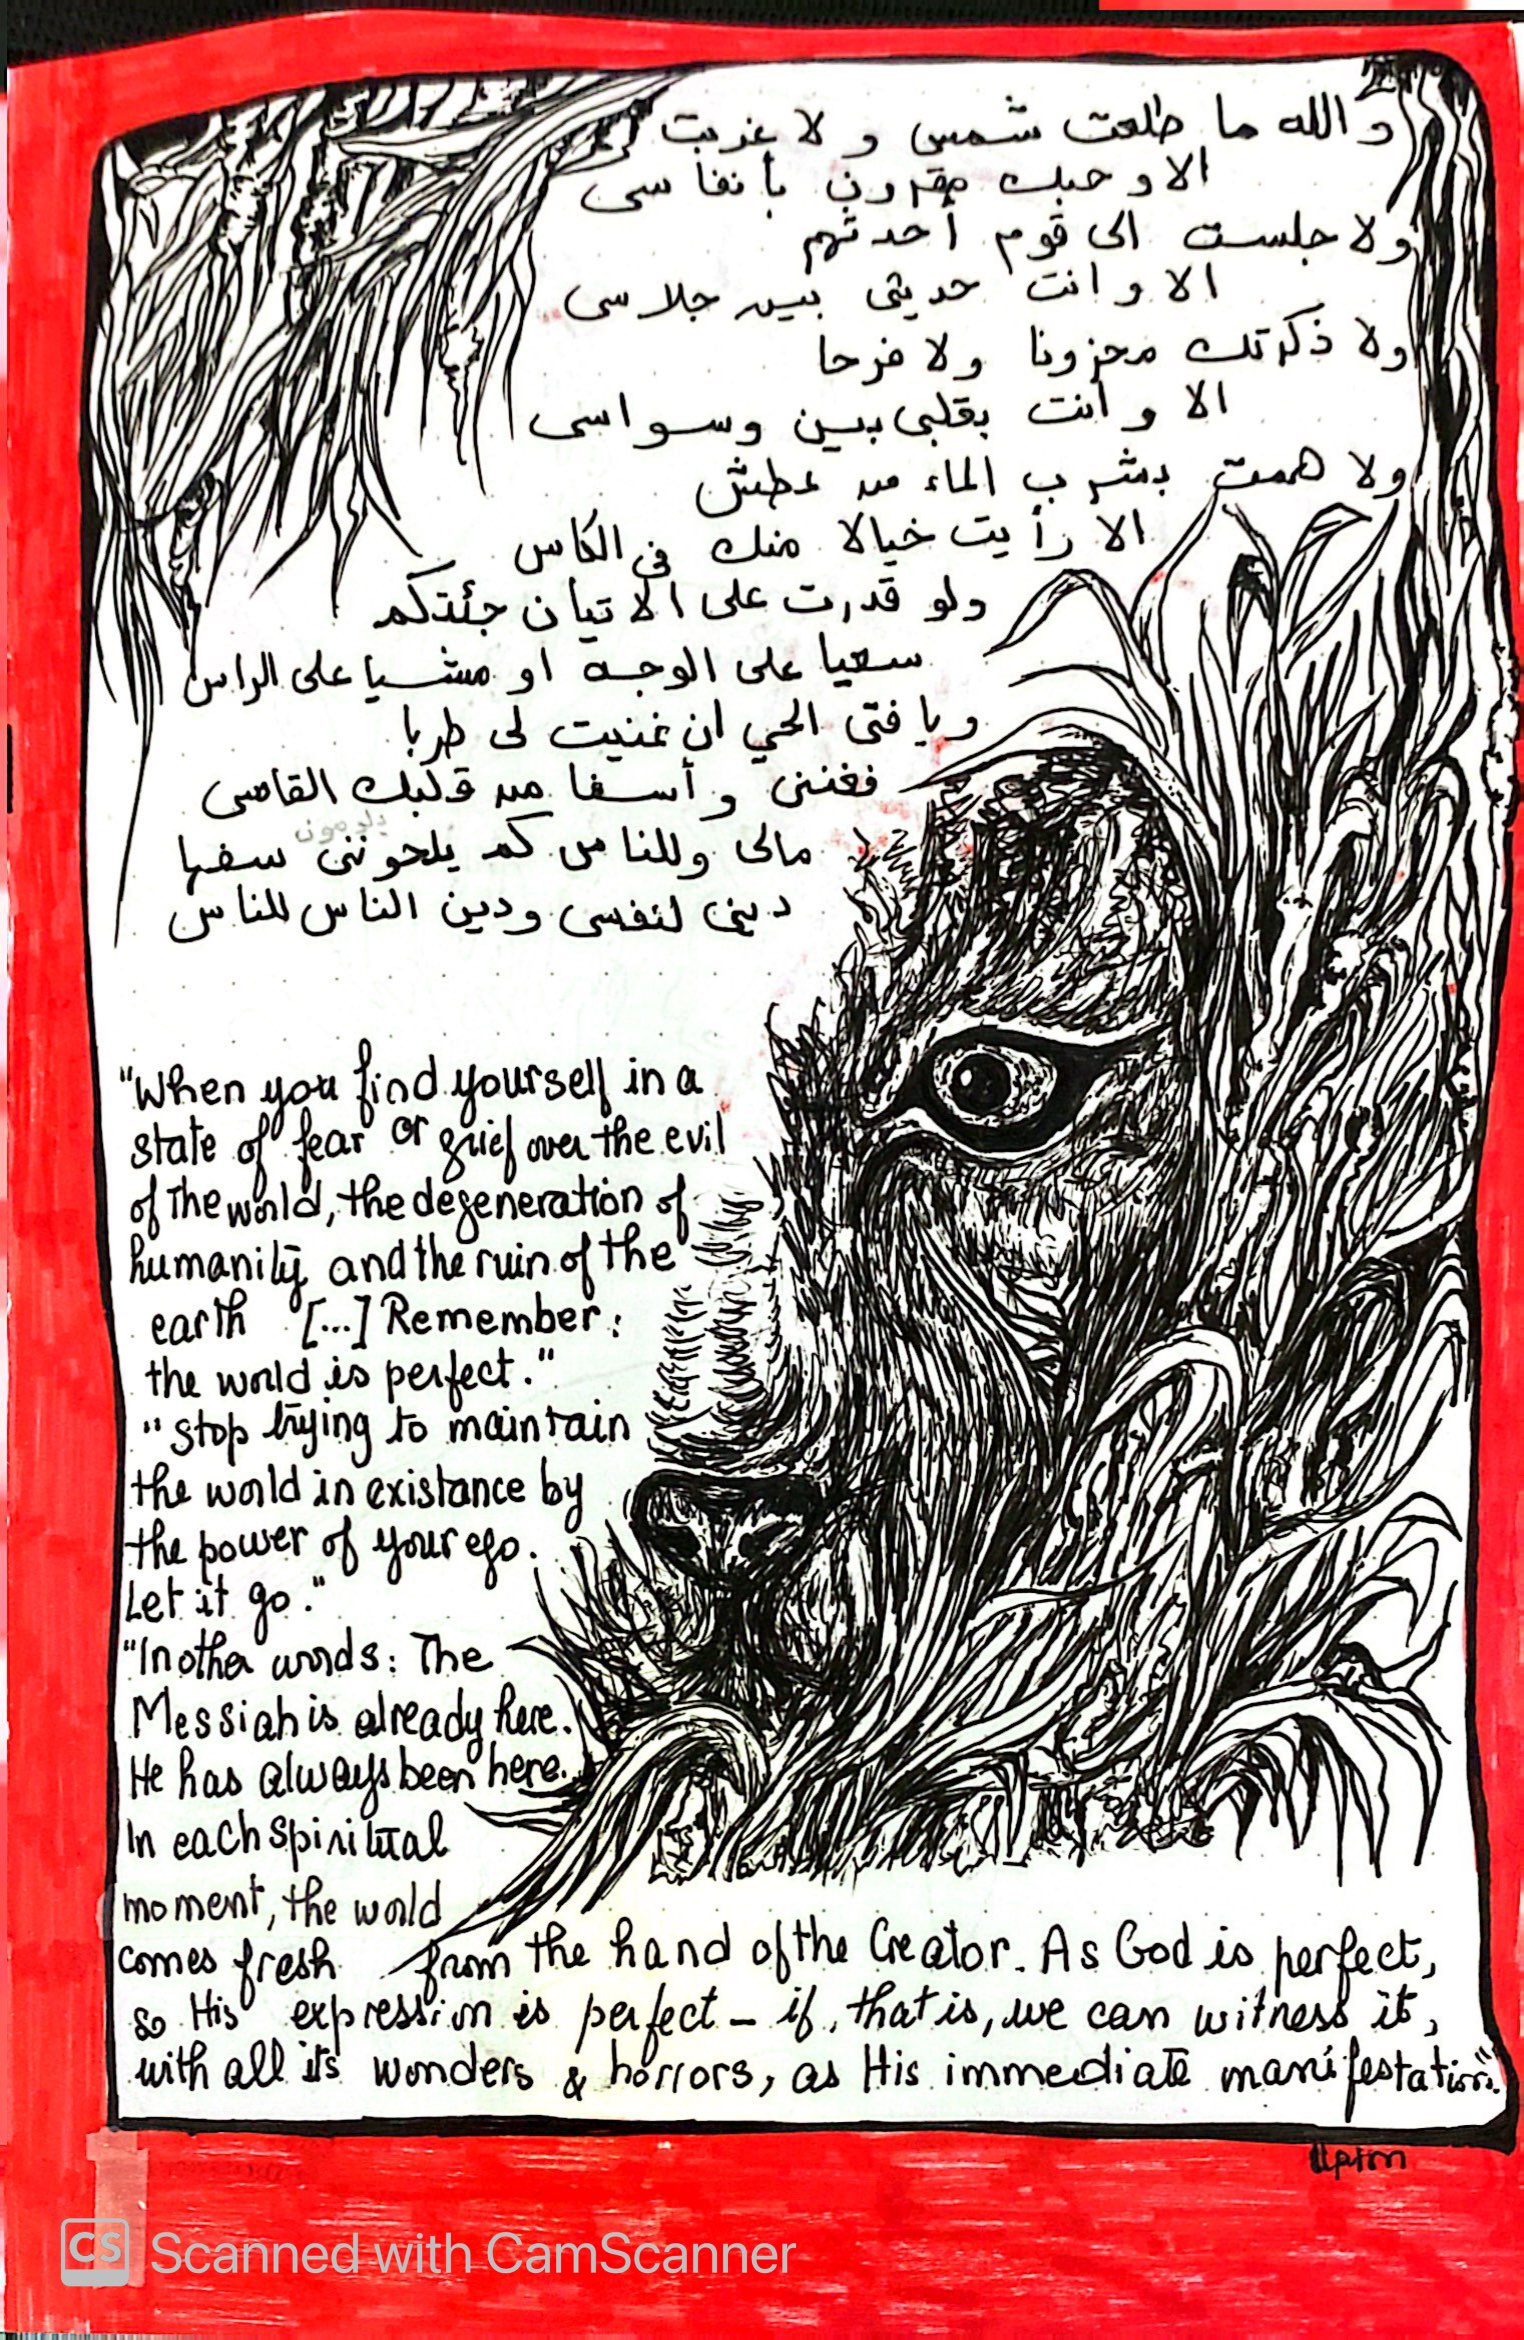 و الله ما طلعت شمس و لا غربت
الا و حبك مقرون بأنفاسى
ولا جلست الى قوم أحدثهم
الا و انت حديثى بين جلاسى
ولا ذكرتك محزونا ولا فرحا
الا و أنت بقلبى بين وسواسى
ولا هممت بشرب الماء من عطش
الا رأيت خيالا منك فى الكاس
ولو قدرت على الاتيان جئتكم
سعيا على الوجه او مشيا على الراس
ويا فتى الحي ان غنيت لى طربا
فغننى وأسفا من قلبك القاسى
يلومون
مالى وللناس كم يلحوننى سفها
دينى لنفسى ودين الناس للناس
"When you find yourself in a
state of fear or grief over the evil
of the world, the degeneration of
humanity and the ruin of the
earth [...] Remember:
the world is perfect."
"Stop trying to maintain
the world in existance by
the power of your ego.
Let it go."
"In other words: The
Messiah is already here.
He has always been here.
In each spiritual
moment, the world
comes fresh from the hand of the Creator. As God is perfect,
so His expression is perfect - if, that is, we can witness it,
with all its wonders & horrors, as His immediate manifestation."
Upton
CS Scanned with CamScanner